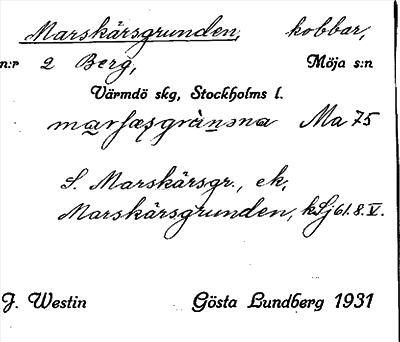 Marskärsgrunden, kobbar,
n:r 2 Berg, Möja s:n
Värmdö skg, Stockholms l.
Ma 75
S. Marskärsgr., ek,
Marskärsgrunden, kSj 61.8.V.
J. Westin Gösta Lundberg 1931